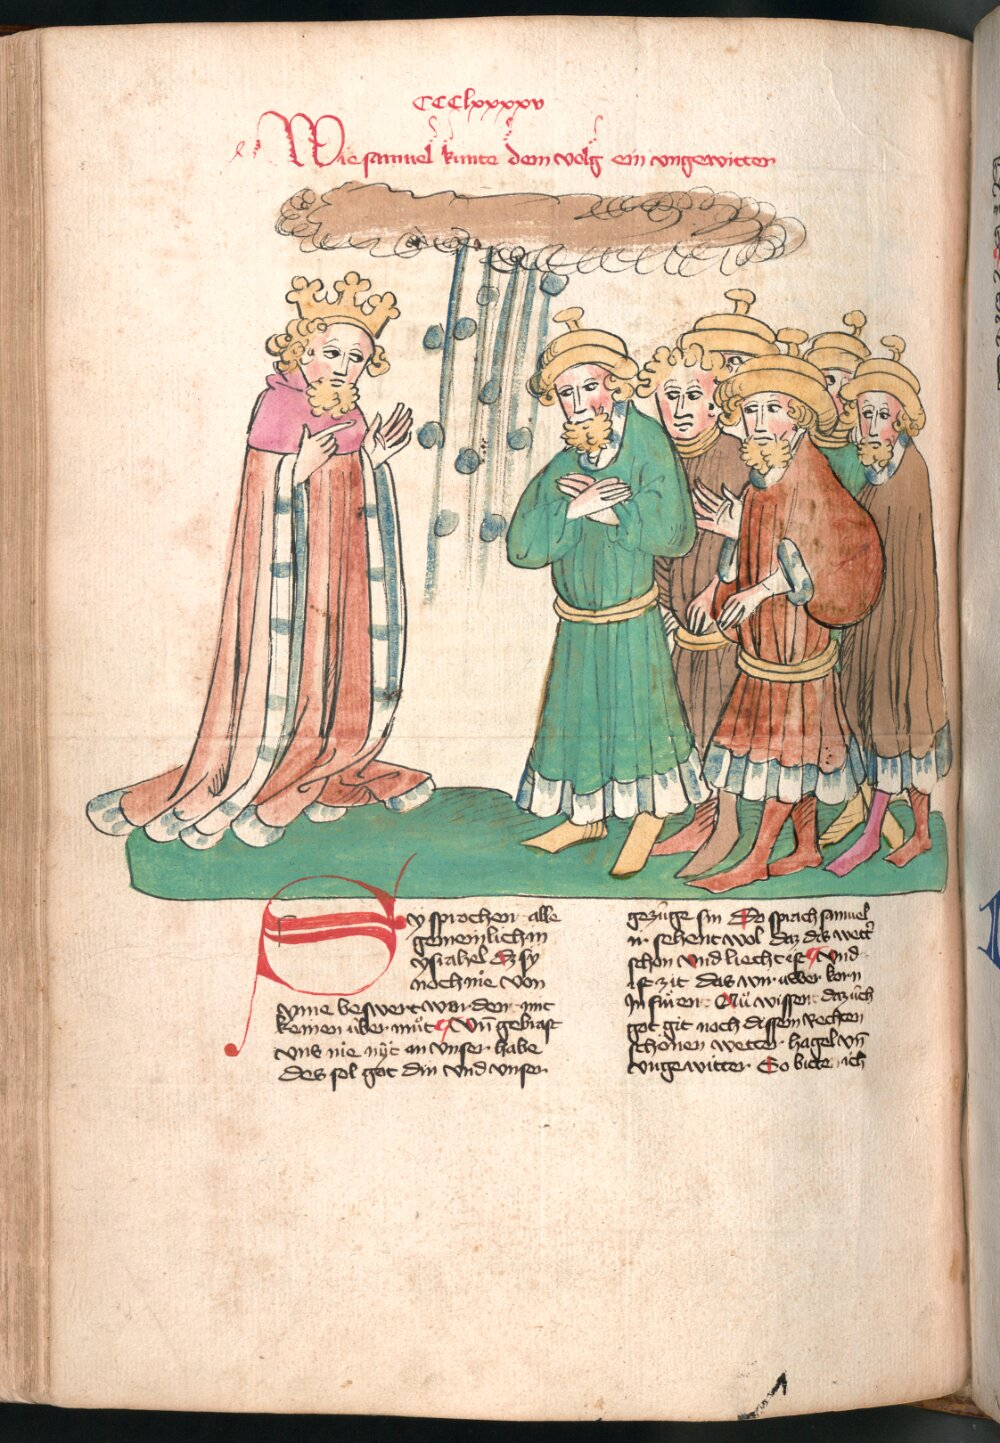 CCClxxxxv
Wie samuel kunte dem volg ein vngewitter
Sy sprochen alle
gemeinlich in
ysrahel Dz sy
noch nie von
yme beswert wurden mit
keinen über můt Vn̄ gebrast
vns nie nÿt an vnser habe
des sol got din vnd vnser
gezüge sin Do sprach samuel
ir sehent wol daz dis wetter
schon vnd liecht ist Vnd
ist zit das wir uwer korn
In fůren Nü wissent daz üch
got git noch dissem rechten
schönen wetter hagel vn̄
vngewitter So bitte ich